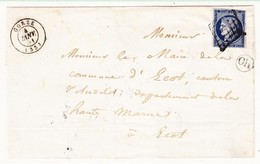 GORZE
4
JANV.
(55)
Monsieur
Monsieur le Maire de la
commune d'Ecot, canton
d'Andelot, département de la
haute Marne
à Ecot
OR